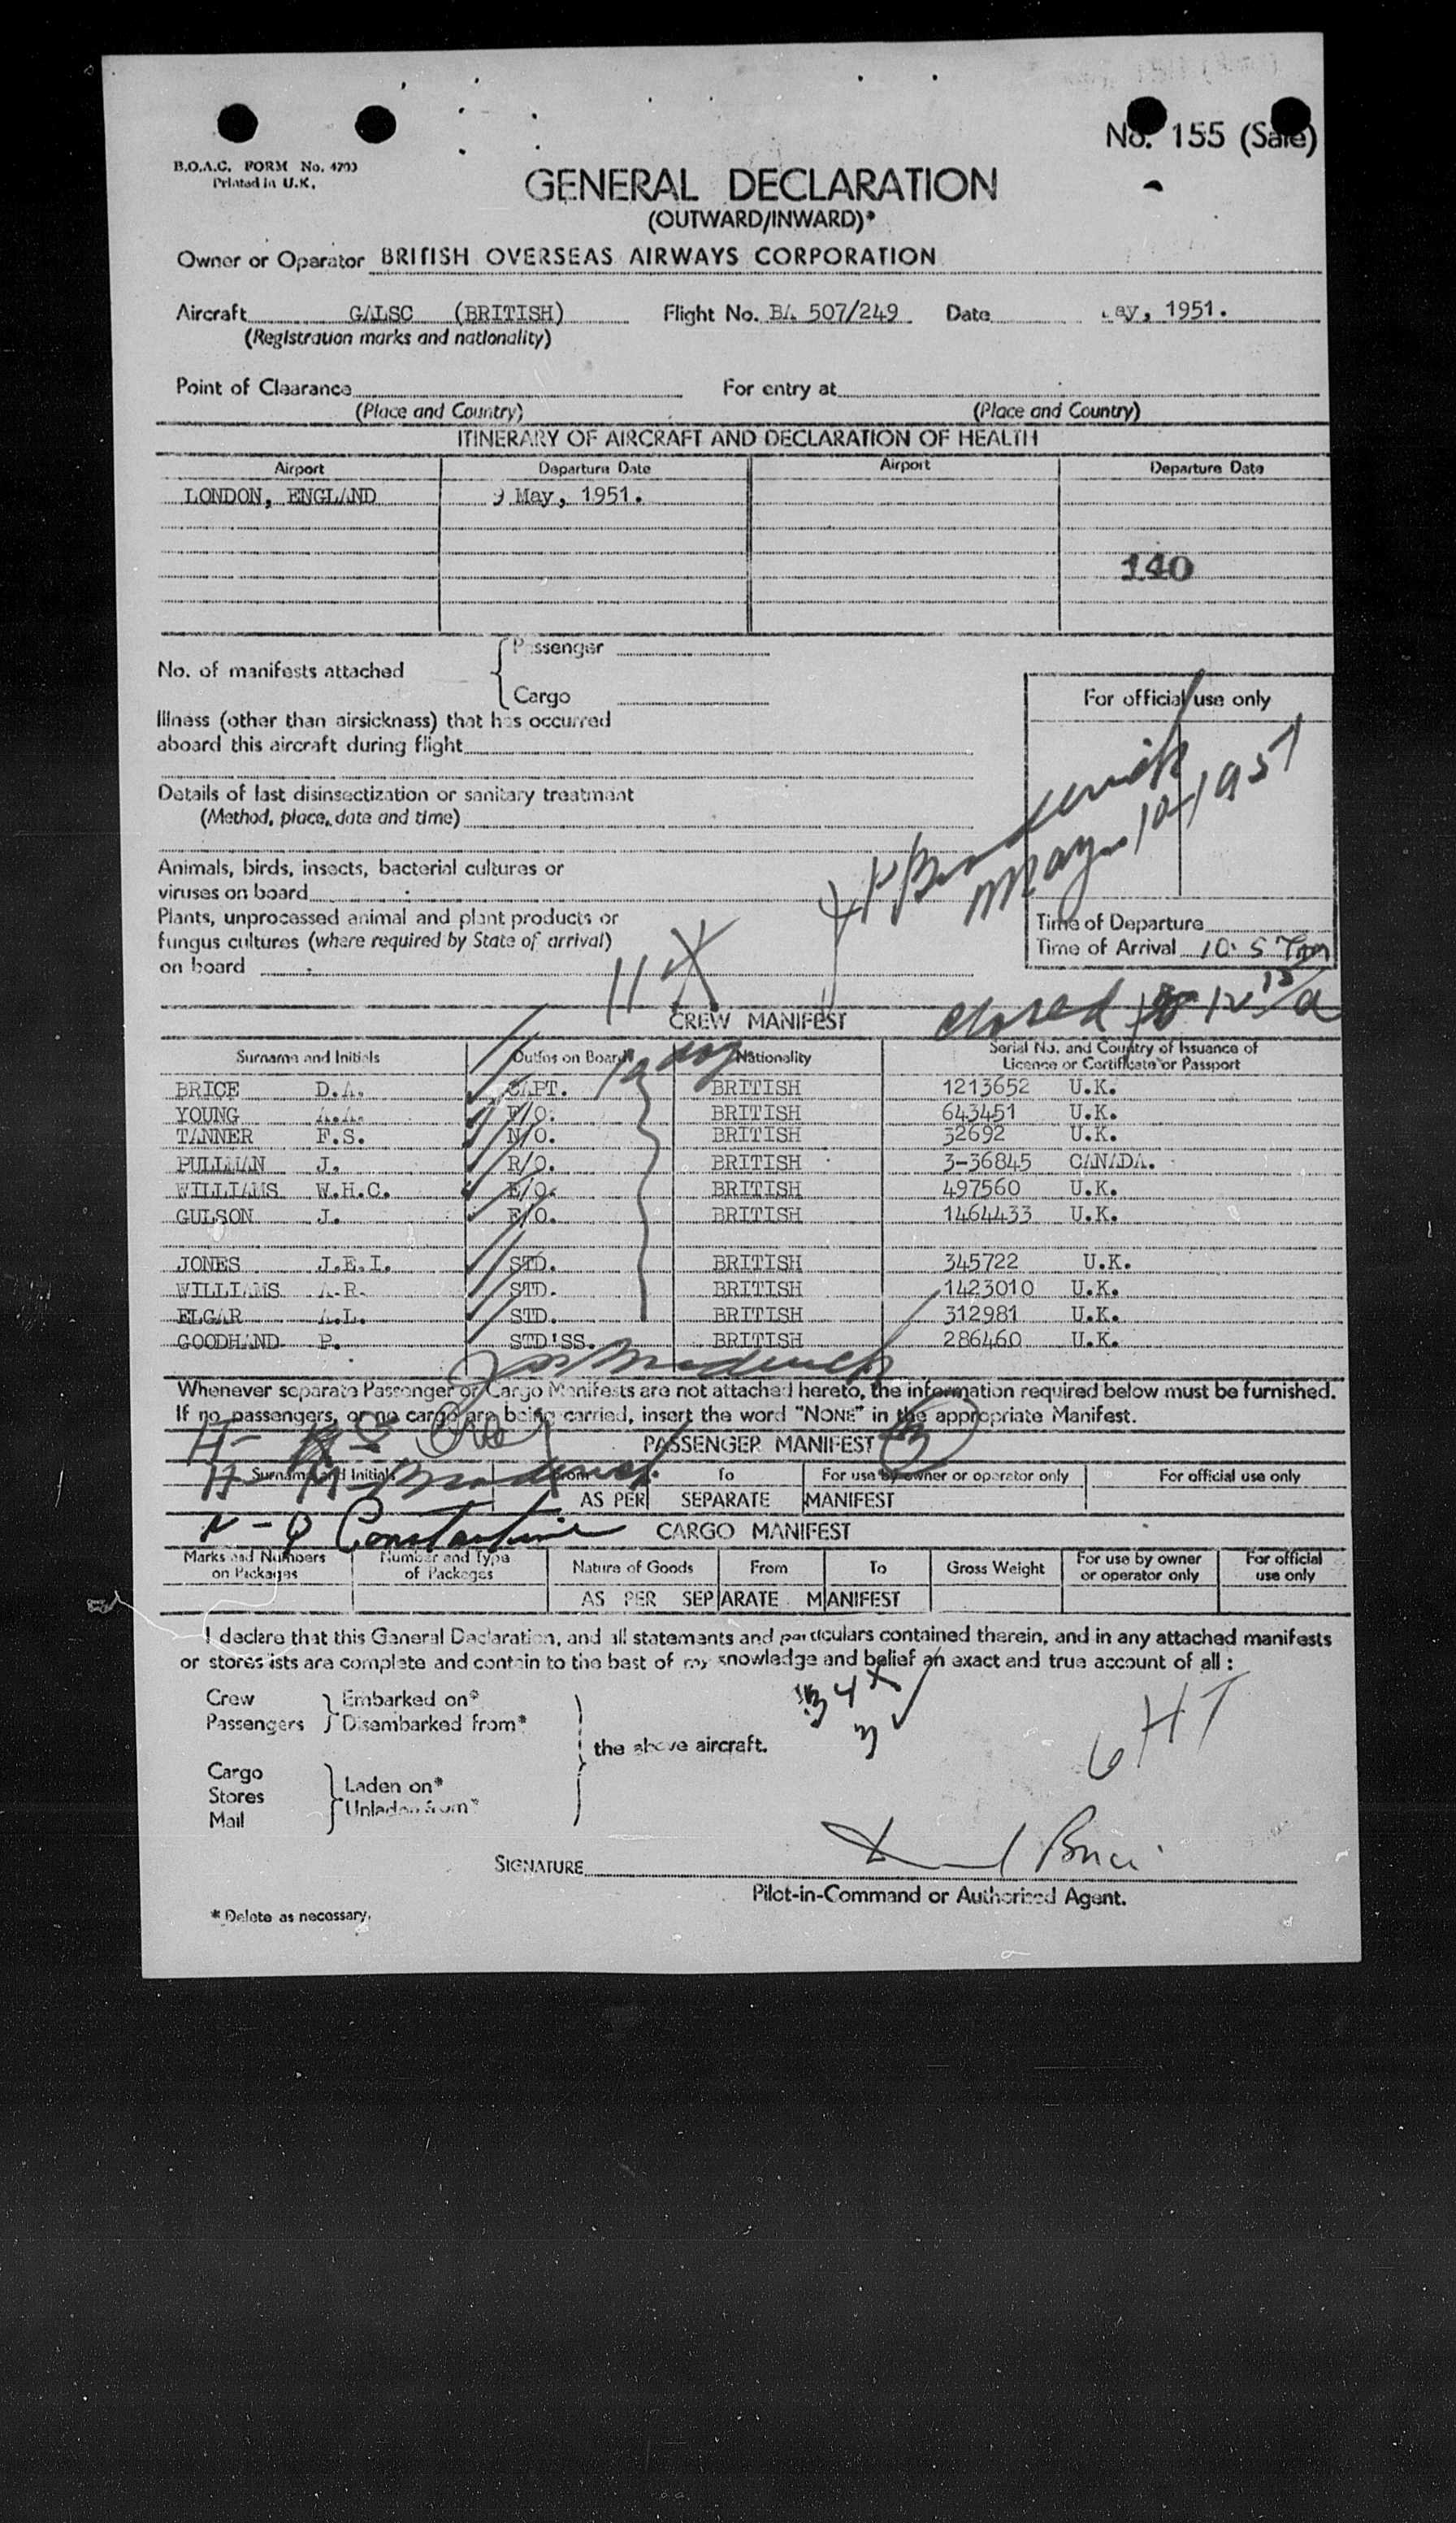 No. 155 (Sale)
B.O.A.C. FORM No. 4703
Printed in U.K.
GENERAL DECLARATION
(OUTWARD/INWARD)*
Owner or Operator BRITISH OVERSEAS AIRWAYS CORPORATION
Aircraft GALSC (BRITISH) Flight No. BA 507/249 Date ay, 1951.
(Registration marks and nationality)
Point of Clearance For entry at
(Place and Country) (Place and Country)
ITINERARY OF AIRCRAFT AND DECLARATION OF HEALTH
Airport Departure Date Airport Departure Date
LONDON, ENGLAND 9 May, 1951.
140
No. of manifests attached { Passenger
Cargo
For official use only
Illness (other than airsickness) that has occurred
aboard this aircraft during flight
Details of last disinsectization or sanitary treatment
(Method, place, date and time)
H Broderick
May 10-1951
Animals, birds, insects, bacterial cultures or
viruses on board
Plants, unprocessed animal and plant products or
fungus cultures (where required by State of arrival)
on board
Time of Departure
Time of Arrival 10:57pm
11 X
closed 12 15/a
CREW MANIFEST
Surname and Initials Duties on Board Nationality Serial No. and Country of Issuance of
Licence or Certificate or Passport
BRICE D.A. CAPT. BRITISH 1213652 U.K.
YOUNG A.A. F/O. BRITISH 643451 U.K.
TANNER F.S. N/O. BRITISH 32692 U.K.
PULLMAN J. R/O. BRITISH 3-36845 CANADA.
WILLIAMS W.H.C. E/O. BRITISH 497560 U.K.
GULSON J. E/O. BRITISH 1464433 U.K.
JONES J.E.I. STD. BRITISH 345722 U.K.
WILLIAMS A.R. STD. BRITISH 1423010 U.K.
ELGAR A.L. STD. BRITISH 312981 U.K.
GOODHAND P. STD'SS. BRITISH 286460 U.K.
Whenever separate Passenger or Cargo Manifests are not attached hereto, the information required below must be furnished.
If no passengers, or no cargo are being carried, insert the word "NONE" in the appropriate Manifest.
PASSENGER MANIFEST
Surname and Initials From To For use by owner or operator only For official use only
AS PER SEPARATE MANIFEST
Broderick
Constantine
CARGO MANIFEST
Marks and Numbers on Packages Number and Type of Packages Nature of Goods From To Gross Weight For use by owner or operator only For official use only
AS PER SEPARATE MANIFEST
I declare that this General Declaration, and all statements and particulars contained therein, and in any attached manifests
or stores lists are complete and contain to the best of my knowledge and belief an exact and true account of all :
Crew } Embarked on*
Passengers } Disembarked from*
the above aircraft.
Cargo
Stores } Laden on*
Mail } Unladen from*
34 X
3
6 HT
SIGNATURE Brice
Pilot-in-Command or Authorised Agent.
* Delete as necessary.